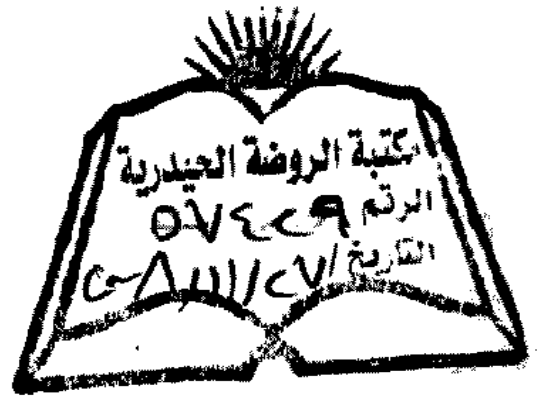 مكتبة الروضة الحيدرية
الرقم ٥٧٤٢٩
التاريخ / ٢٧/١١/٢٠٠٨